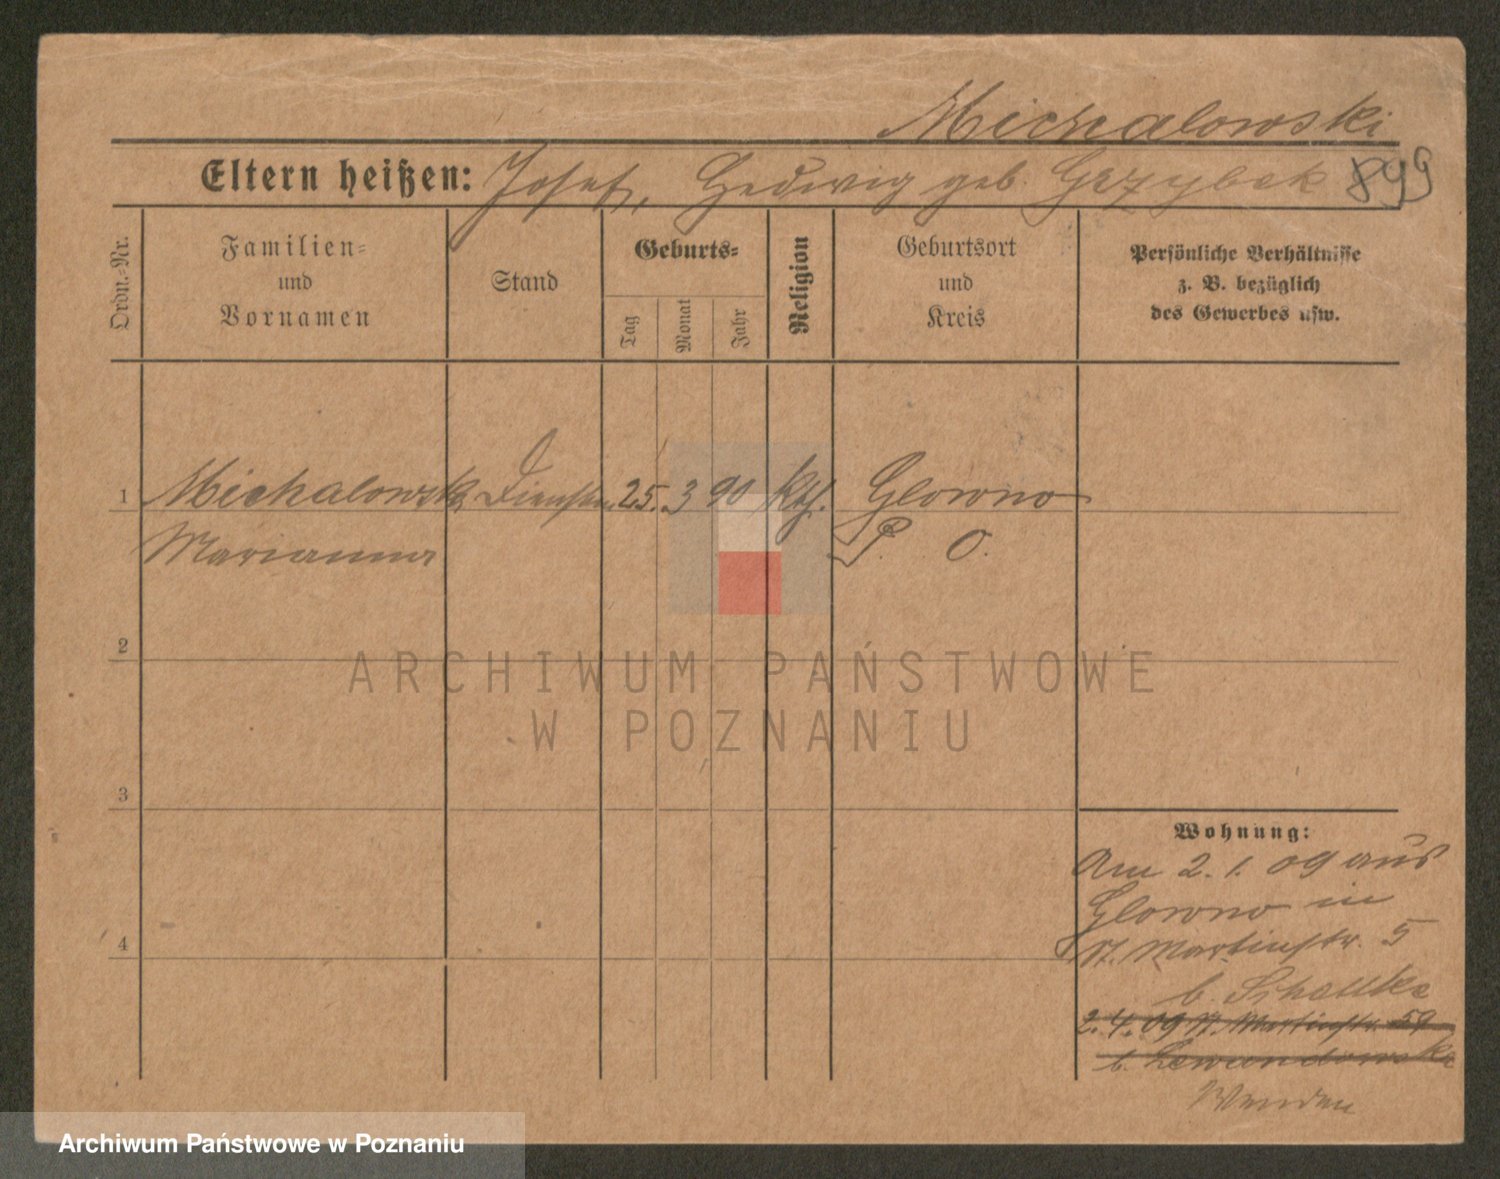 Michalowski
Eltern heißen: Josef, Hedwig geb. Grzybek 899
Ordn.-Nr.
Familien-
und
Vornamen
Stand
Geburts-
Tag
Monat
Jahr
Religion
Geburtsort
und
Kreis
Persönliche Verhältnisse
z. B. bezüglich
des Gewerbes usw.
1 Michalowski 25. 3 90 kth. Glowno
Marianna P. O.
2
3
4
Wohnung:
Am 2. 1. 09 aus
Glowno in
St. Martinstr. 5
b. Schattke
2. 4. 09 St. Martinstr. 59
b. Lewandowski
Wenden
ARCHIWUM PAŃSTWOWE
W POZNANIU
Archiwum Państwowe w Poznaniu